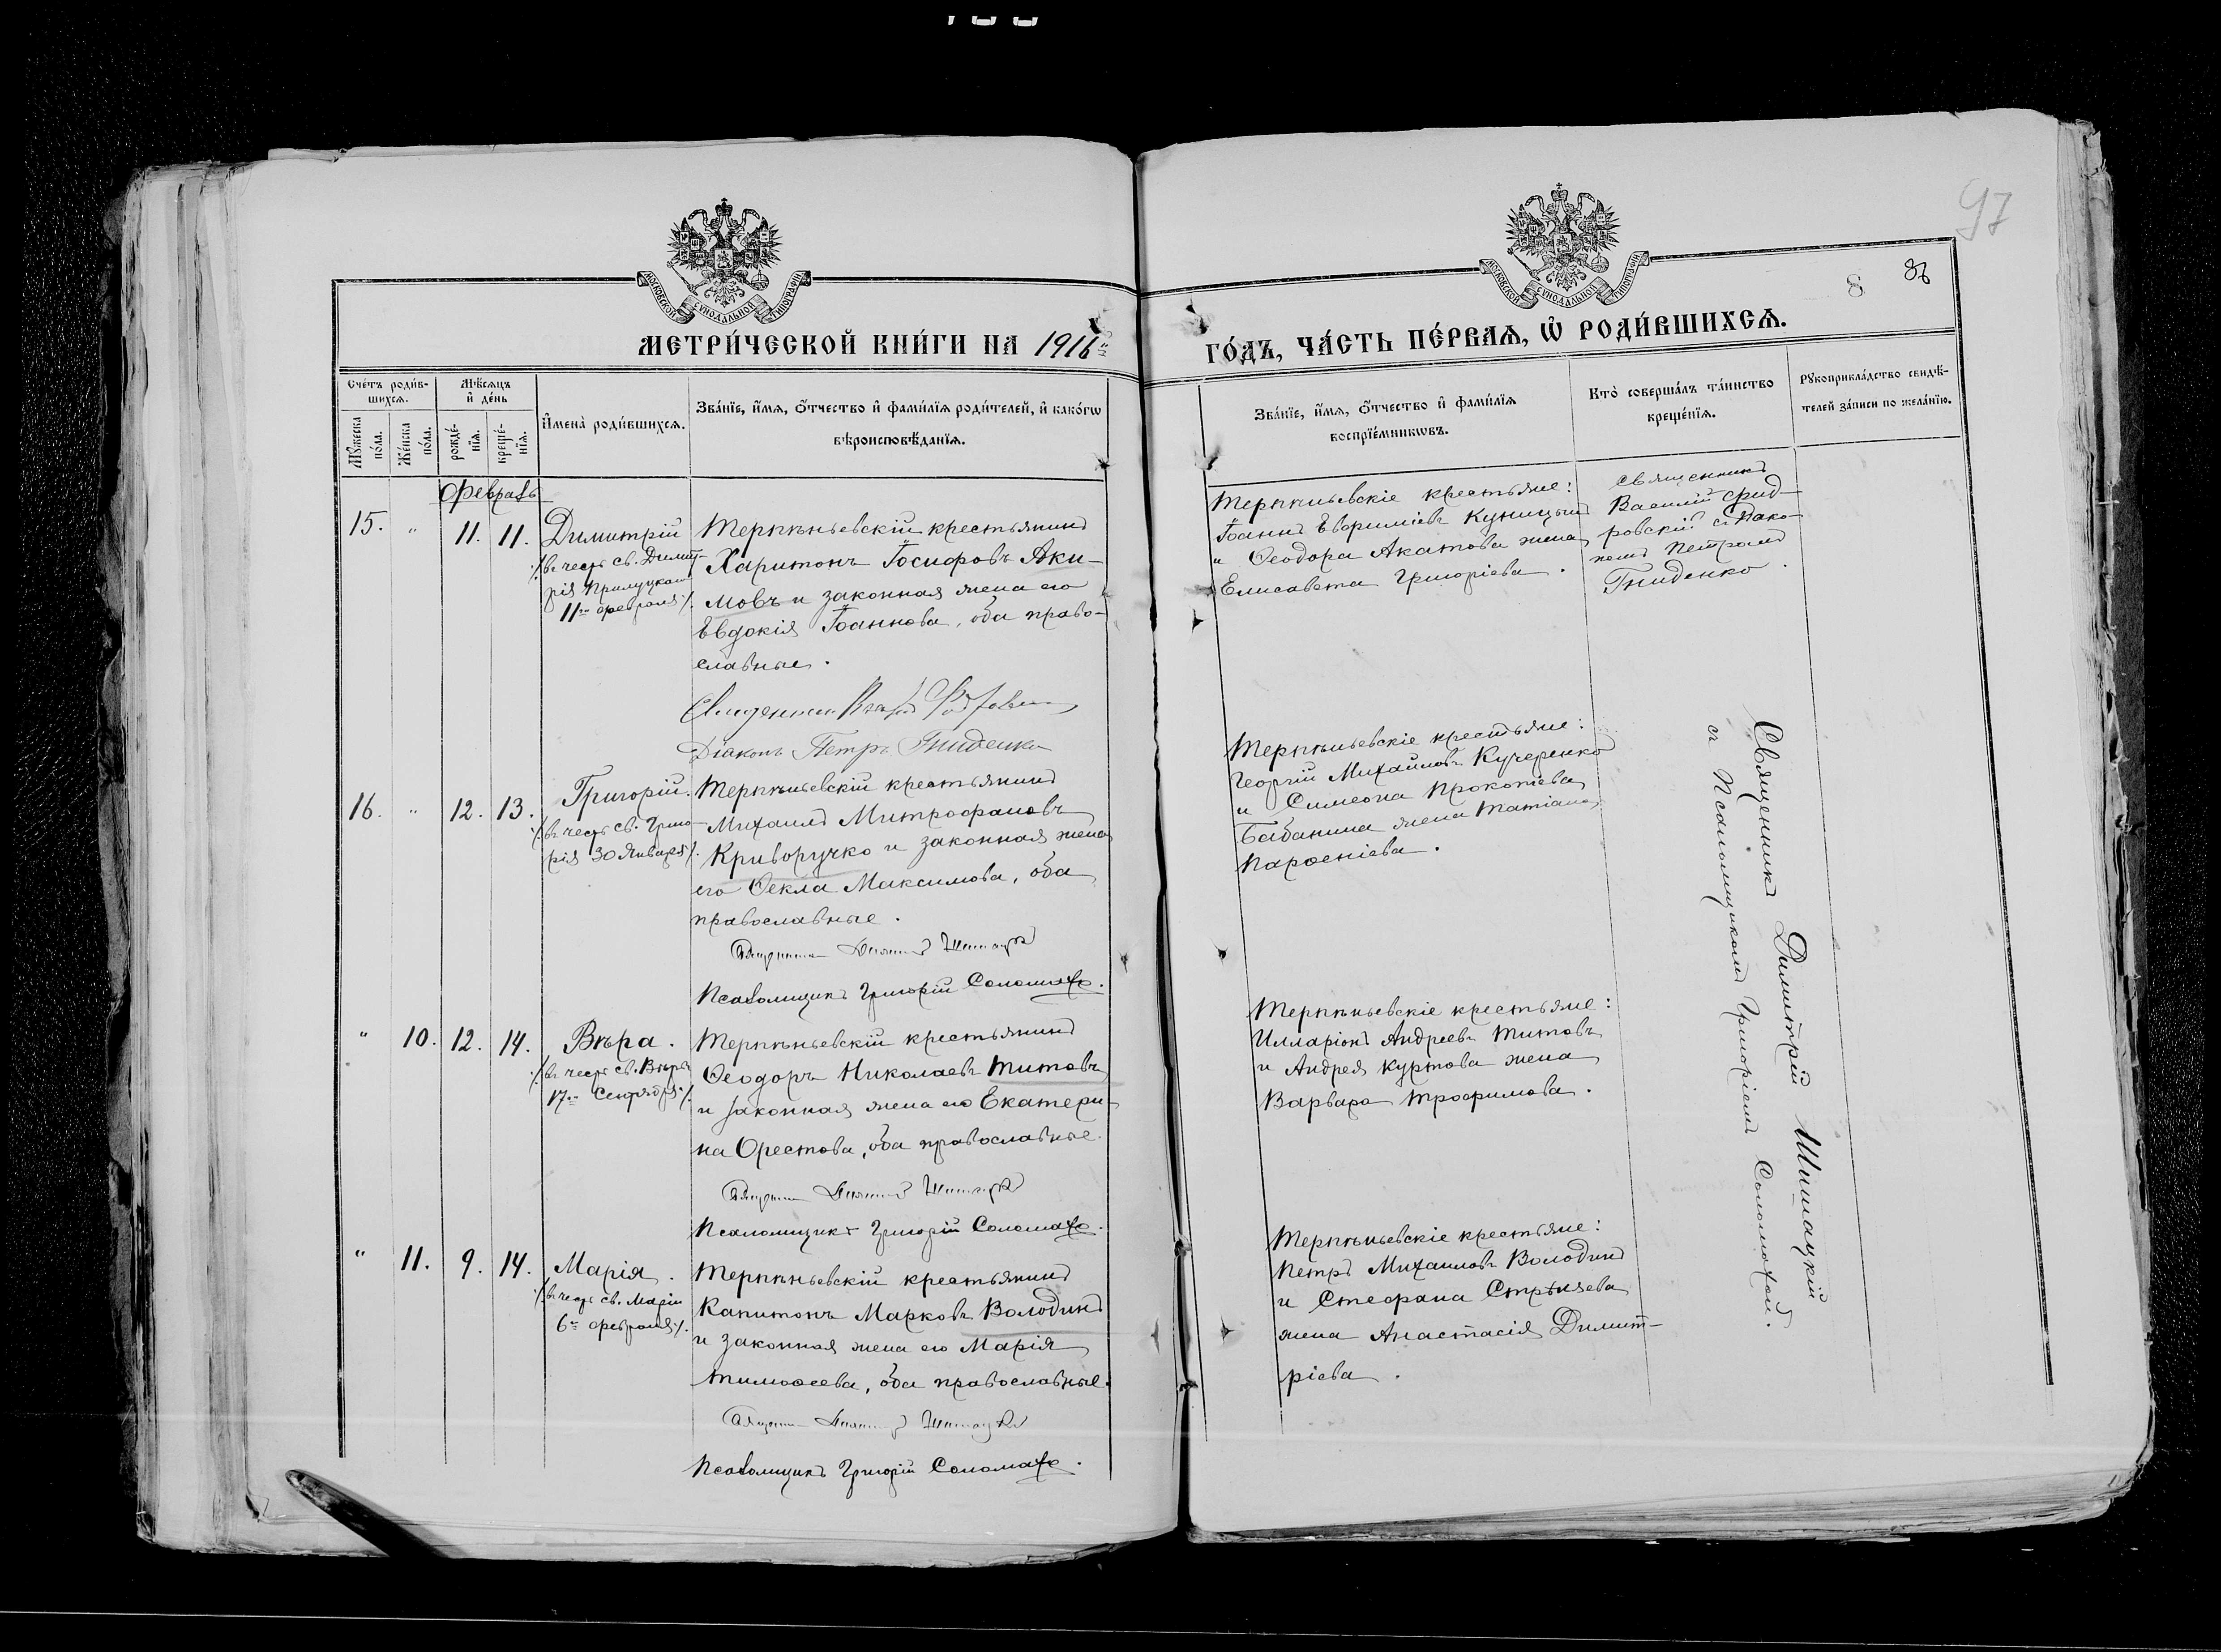 97
8
МОСКОВСКОЙ СѴНОДАЛЬНОЙ ТИПОГРАФІИ
МОСКОВСКОЙ СѴНОДАЛЬНОЙ ТИПОГРАФІИ
МЕТРИ́ЧЕСКОЙ КНИ́ГИ НА 1916
ГО́ДЪ, ЧА́СТЬ ПЕ́РВАЯ, Ѡ҆ РОДИ́ВШИХСЯ.
Сче́тъ роди́в-
шихся.
Мѣ́сяцъ
и҆ де́нь
Му́жеска
по́ла.
Же́нска
по́ла.
рожде́-
нїя.
креще́-
нїя.
И҆мена̀ роди́вшихся.
Зва́нїе, и҆́мя, ѻ҆́тчество и҆ фами́лїя роди́телей, и҆ како́гѡ
вѣроисповѣ́данїя.
Зва́нїе, и҆́мя, ѻ҆́тчество и҆ фами́лїя
воспрїе́мникѡвъ.
Кто̀ соверша́лъ та́инство
креще́нїя.
Рꙋкоприкла́дство свидѣ́-
телей за́писи по жела́нїю.
Февраль
15. " 11. 11. Димитрій
/въ честь св. Димит-
рія Прилуцкаго
11го февраля/.
Терпѣньевскій крестьянинъ
Харитонъ Іосифовъ Аки-
мовъ и законная жена его
Евдокія Іоаннова, оба право-
славные.
Діаконъ Петръ Гниденко
Терпѣньевскіе крестьяне:
Іоаннъ Евѳиміевъ Куницын
и Ѳеодора Акатова жена
Елисавета Григоріева.
священникъ
Василій
ровскій съ діако-
номъ Петромъ
Гниденко.
16. " 12. 13. Григорій.
/въ честь св. Григо-
рія 30 Января/.
Терпѣньевскій крестьянинъ
Михаилъ Митрофановъ
Криворучко и законная жена
его Ѳекла Максимова, оба
православные.
Псаломщикъ Григорій Соломаха.
Терпѣньевскіе крестьяне:
Георгій Михайловъ Кучеренко
и Симеона Прокопіева
Бабанина жена Татіана
Парѳеніева.
Священникъ Димитрій Шишацкій
съ Псаломщикомъ Григоріемъ Соломахой.
" 10. 12. 14. Вѣра.
/въ честь св. Вѣры
17го Сентября/.
Терпѣньевскій крестьянинъ
Ѳеодоръ Николаевъ Титовъ
и законная жена его Екатери-
на Орестова, оба православные.
Псаломщикъ Григорій Соломаха.
Терпѣньевскіе крестьяне:
Илларіонъ Андреевъ Титовъ
и Андрея Куртова жена
Варвара Трофимова.
" 11. 9. 14. Марія.
/въ честь св. Маріи
6го февраля/.
Терпѣньевскій крестьянинъ
Капитонъ Марковъ Володинъ
и законная жена его Марія
Тимоѳеева, оба православные.
Псаломщикъ Григорій Соломаха.
Терпѣньевскіе крестьяне:
Петръ Михаиловъ Володинъ
и Стефана Стрѣляева
жена Анастасія Димит-
ріева.